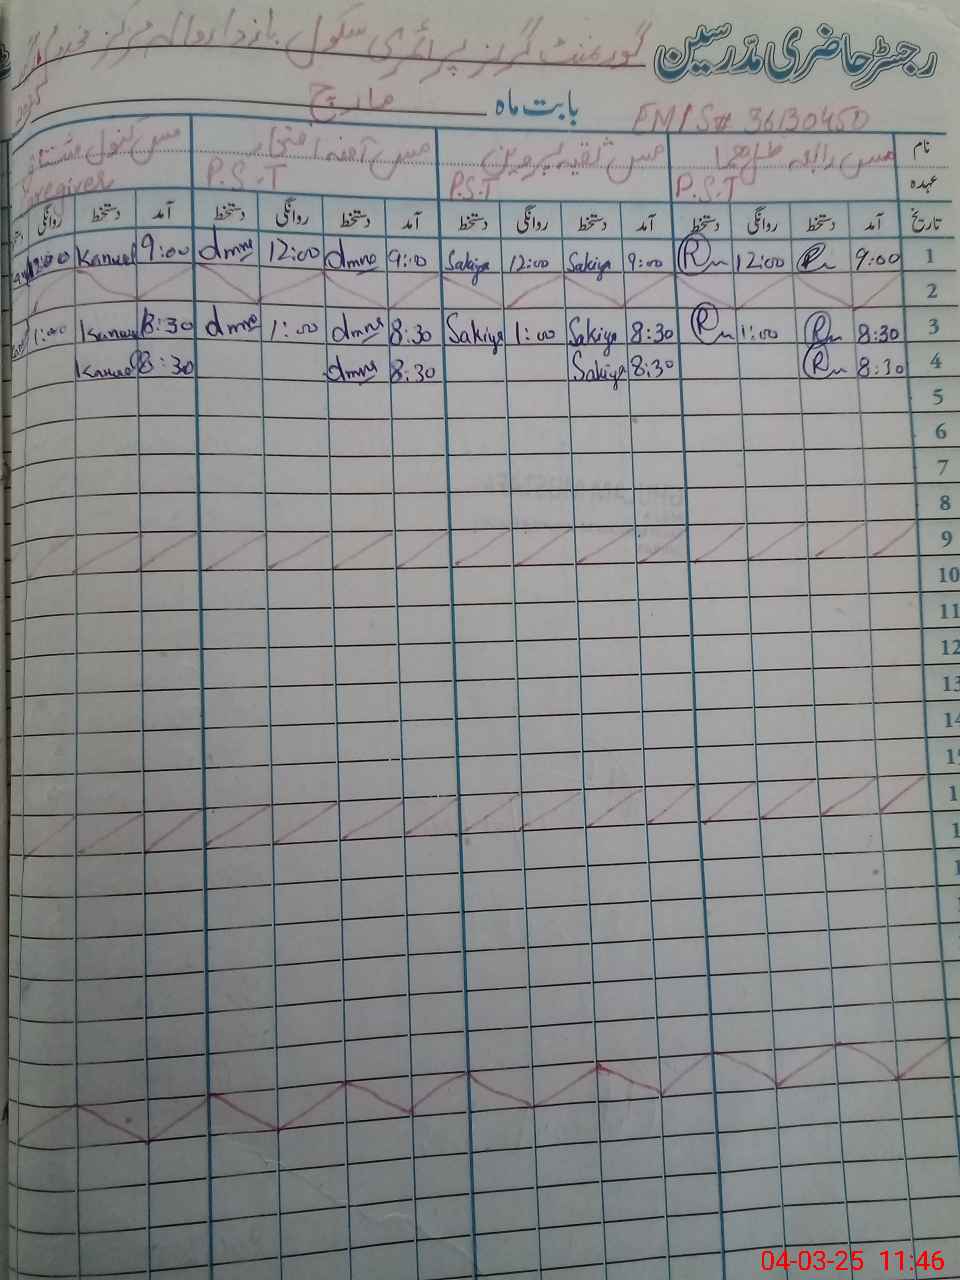 رجسٹر حاضری مدرسین گورنمنٹ گرلز پرائمری سکول
بابت ماہ مارچ 2025
EMIS# 36130450
نام مس رابعہ مس ثقیہ پروین مس آمنہ افتخار مس کنول
عہدہ P.S.T P.S.T P.S.T Caregiver
تاریخ آمد دستخط روانگی دستخط آمد دستخط روانگی دستخط آمد دستخط روانگی دستخط آمد دستخط روانگی
1 9:00 12:00 9:00 Sakiya 12:00 Sakiya 9:00 12:00 9:00 Kanwal 12:00
2
3 8:30 1:00 8:30 Sakiya 1:00 Sakiya 8:30 1:00 8:30 Kanwal 1:00
4 8:30 8:30 Sakiya 8:30 8:30 Kanwal
5
6
7
8
9
10
11
12
13
14
04-03-25 11:46